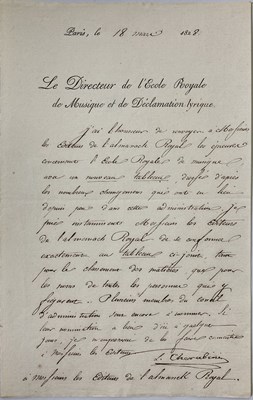 Paris, le 18 mars 1828
Le Directeur de l'Ecole Royale
de Musique et de Déclamation lyrique.
J'ai l'honneur de renvoyer à Messieurs
les éditeurs de l'almanach Royal les épreuves
concernant l'Ecole Royale de musique
avec un nouveau tableau dressé d'après
les nombreux changemens qui ont eu lieu
depuis peu dans cette administration. Je
prie instamment Messieurs les éditeurs
de l'almanach Royal de se conformer
exactement au tableau ci-joint, tant
pour le classement des matières que pour
les noms de toutes les personnes qui y
figurent. Plusieurs membres du conseil
d'administration sont encore à nommer. Si
leur nomination a lieu d'ici à quelques
jours, je m'empresserai de les faire connaître
à Messieurs les éditeurs
L. Cherubini
à Messieurs les éditeurs de l'almanach Royal.